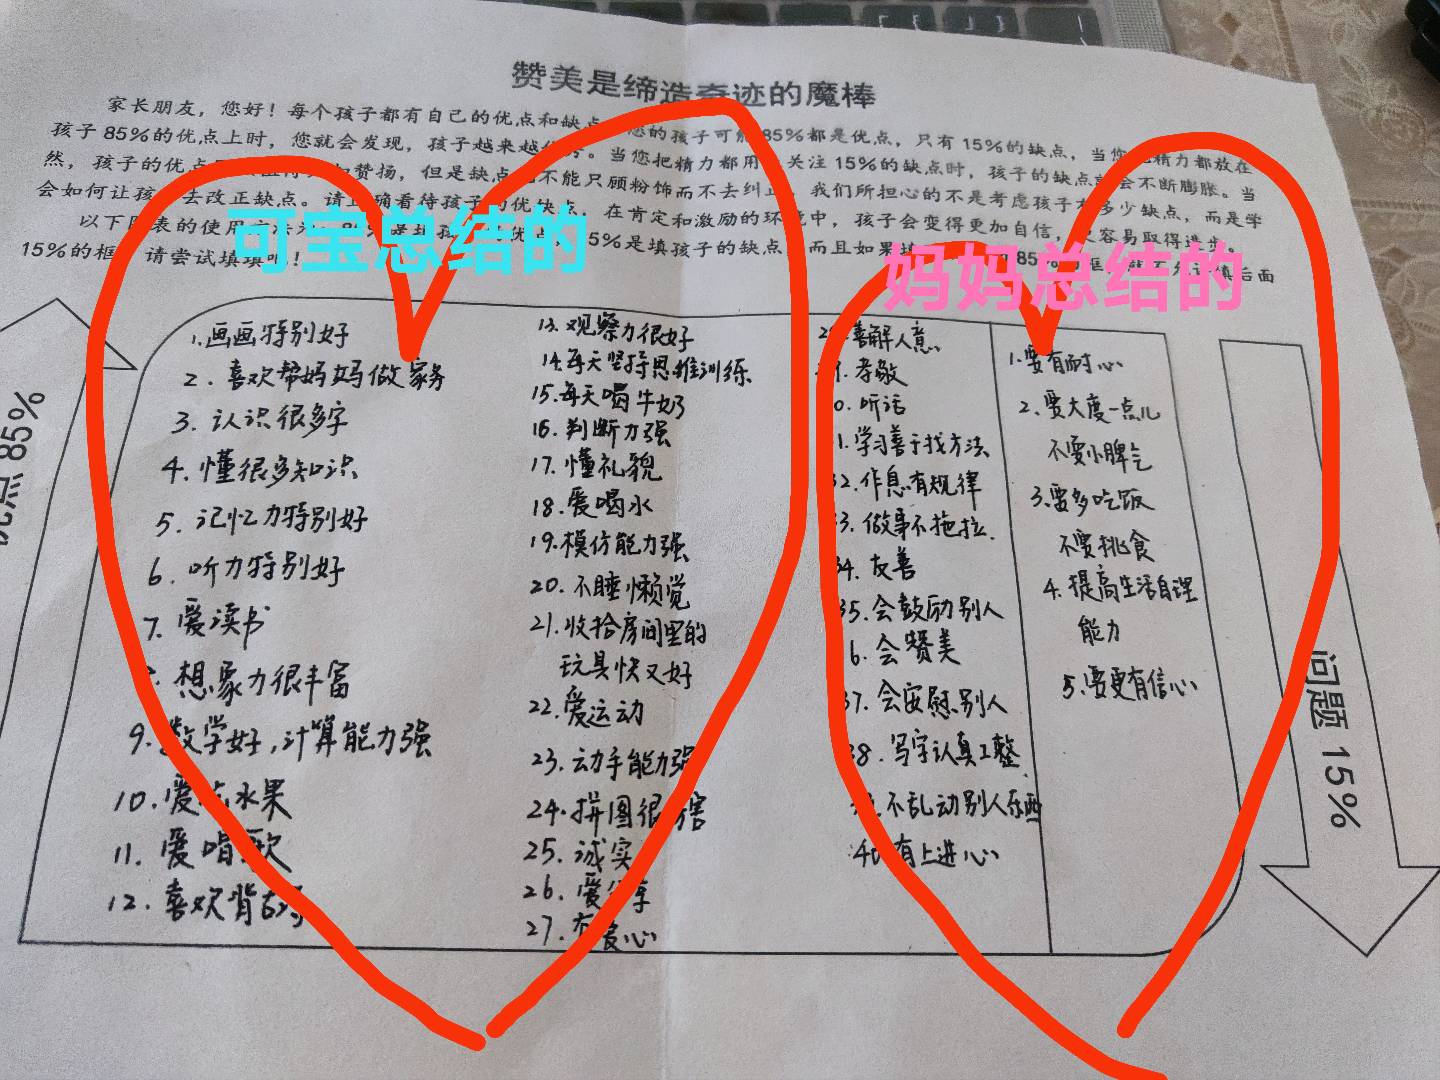 赞美是缔造奇迹的魔棒
家长朋友，您好！每个孩子都有自己的优点和缺点 您的孩子可能85%都是优点，只有15%的缺点，当您 精力都放在
孩子85%的优点上时，您就会发现，孩子越来越优秀。当您把精力都用 关注15%的缺点时，孩子的缺点 会不断膨胀。当
然，孩子的优点 赞扬，但是缺点 不能只顾粉饰而不去纠正。我们所担心的不是考虑孩子有多少缺点，而是学
会如何让孩 去改正缺点。请正确看待孩子的优缺点，在肯定和激励的环境中，孩子会变得更加自信， 容易取得进步。
以下图表的使用 5%是填孩子的缺点 而且如果 85% 填后面
15%的框 请尝试填填吧！
可宝总结的
妈妈总结的
优点 85%
1.画画特别好
2.喜欢帮妈妈做家务
3.认识很多字
4.懂很多知识
5.记忆力特别好
6.听力特别好
7.爱读书
想象力很丰富
9.数学好,计算能力强
10.爱吃水果
11.爱唱歌
12.喜欢背古诗
13.观察力很好
14.每天坚持思维训练
15.每天喝牛奶
16.判断力强
17.懂礼貌
18.爱喝水
19.模仿能力强
20.不睡懒觉
21.收拾房间里的
玩具快又好
22.爱运动
23.动手能力强
24.拼图很厉害
25.诚实
26.爱分享
27.有爱心
28.善解人意
孝敬
0.听话
1.学习善于找方法
32.作息有规律
33.做事不拖拉.
34.友善
35.会鼓励别人
6.会赞美
37.会安慰别人
38.写字认真工整.
不乱动别人东西
40.有上进心
1.要有耐心
2.要大度一点儿
不要小脾气
3.要多吃饭
不要挑食
4.提高生活自理
能力
5.要更有信心
问题 15%